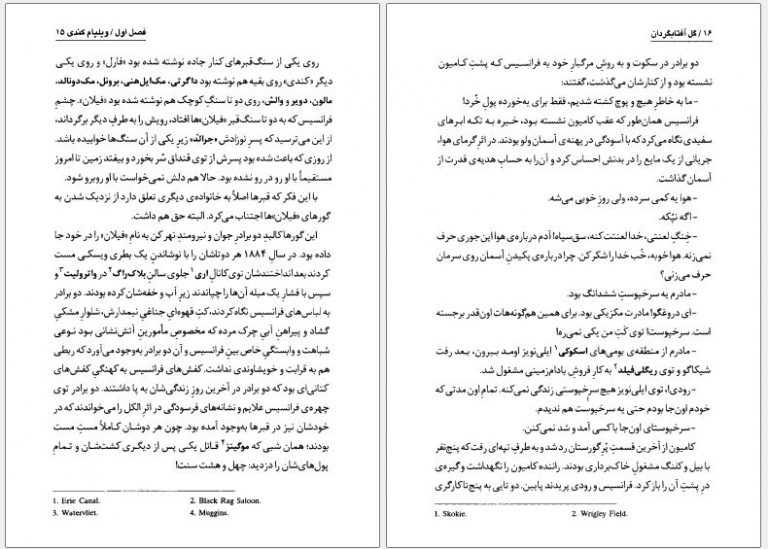 فصل اول / ویلیام کندی ۱۵
روی یکی از سنگ‌قبرهای کنار جاده نوشته شده بود «فارل» و روی یکی
دیگر «کندی» روی بقیه هم نوشته بود داگرتی، مک‌ایل‌هنی، برونل، مک‌دونالد،
مالون، دویر و والش، روی دو تا سنگ کوچک هم نوشته شده بود «فیلان». چشمِ
فرانسیس که به دو تا سنگ‌قبر «فیلان»ها افتاد، رویش را به طرفِ دیگر برگرداند،
از این می‌ترسید که پسرِ نوزادش «جرالد» زیرِ یکی از آن سنگ‌ها خوابیده باشد.
از روزی که باعث شده بود پسرش از توی قنداق سُر بخورد و بیفتد زمین تا امروز
مستقیماً با او رو در رو نشده بود. حالا هم دلش نمی‌خواست با او روبرو شود.
با این فکر که قبرها اصلاً به خانواده‌ی دیگری تعلق دارد از نزدیک شدن به
گورهای «فیلان»ها اجتناب می‌کرد. البته حق هم داشت.
این گورها کالبدِ دو برادرِ جوان و نیرومندِ نهر کن به نامِ «فیلان» را در خود جا
داده بود. در سالِ ۱۸۸۴ هر دوتاشان را با نوشاندنِ یک بطری ویسکی مست
کردند بعد انداختندشان توی کانالِ اری ۱ جلوی سالنِ بلاک‌راگ ۲ در واترولیت ۳ و
سپس با فشارِ یک میله آن‌ها را چپاندند زیرِ آب و خفه‌شان کرده بودند. دو برادر
به لباس‌های فرانسیس نگاه کردند، کتِ قهوه‌ایِ جناغیِ نیمدارش، شلوارِ مشکیِ
گشاد و پیراهنِ آبیِ چرک مرده که مخصوصِ مأمورینِ آتش‌نشانی بود نوعی
شباهت و وابستگیِ خاص بینِ فرانسیس و آن دو برادر به‌وجود می‌آورد که ربطی
هم به قرابت و خویشاوندی نداشت. کفش‌های فرانسیس به کهنگیِ کفش‌های
کتانی‌ای بود که دو برادر در آخرین روزِ زندگی‌شان به پا داشتند. دو برادر توی
چهره‌ی فرانسیس علایم و نشانه‌های فرسودگی در اثرِ الکل را می‌خواندند که در
خودشان نیز در قبرها به‌وجود آمده بود. چون هر دوشان کاملاً مستِ مست
بودند؛ همان شبی که موگینز ۴ قاتل یکی پس از دیگری کشت‌شان و تمامِ
پول‌های‌شان را دزدید: چهل و هشت سنت!
1. Erie Canal. 2. Black Rag Saloon.
3. Watervliet. 4. Muggins.
۱۶ / گل آفتابگردان
دو برادر در سکوت و به روشِ مرگبارِ خود به فرانسیس که پشتِ کامیون
نشسته بود و از کنارشان می‌گذشت، گفتند:
-ما به خاطرِ هیچ و پوچ کشته شدیم، فقط برای یه‌خورده پولِ خُرد!
فرانسیس همان‌طور که عقب کامیون نشسته بود، خیره به تکه ابرهای
سفیدی نگاه می‌کرد که با آسودگی در پهنه‌ی آسمان ولو بودند. در اثرِ گرمای هوا،
جریانی از یک مایع را در بدنش احساس کرد و آن‌را به حسابِ هدیه‌ی قدرت از
آسمان گذاشت.
-هوا یه کمی سرده، ولی روز خوبی می‌شه.
-اگه نپُکه.
-خِنگِ لعنتی، خدا لعنتت کنه، سق‌سیاه! آدم درباره‌ی هوا این جوری حرف
نمی‌زنه. هوا خوبه، خُب خدا را شکر کن. چرا درباره‌ی پکیدنِ آسمان روی سرمان
حرف می‌زنی؟
-مادرم یه سرخپوستِ ششدانگ بود.
-ای دروغگو! مادرت مکزیکی بود. برای همین هم‌گونه‌هات اون‌قدر برجسته
است. سرخپوست! توی کَتِ من یکی نمی‌ره!
-مادرم از منطقه‌ی بومی‌های اسکوکی ۱ ایلی‌نویز اومد بیرون، بعد رفت
شیکاگو و توی ریگلی‌فیلد ۲ به کارِ فروشِ بادام‌زمینی مشغول شد.
-رودی!، توی ایلی‌نویز هیچ سرخپوستی زندگی نمی‌کنه. تمام اون مدتی که
خودم اون‌جا بودم حتی یه سرخپوست هم ندیدم.
-سرخپوستای اون‌جا با کسی آمد و شد نمی‌کنن.
کامیون از آخرین قسمتِ پُرِ گورستان رد شد و به طرفِ تپه‌ای رفت که پنج‌نفر
با بیل و کلنگ مشغولِ خاک‌برداری بودند. راننده کامیون را نگهداشت و گیره‌ی
درِ پشتِ آن را باز کرد. فرانسیس و رودی پریدند پایین. دو تایی به پنج‌تا کارگری
1. Skokie. 2. Wrigley Field.